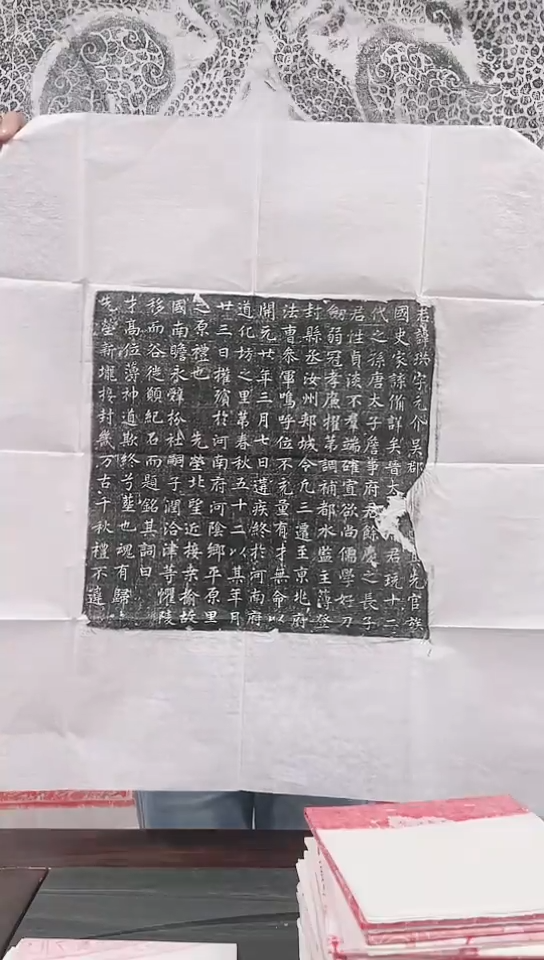 君諱珙字元介吳郡先官族
國史家諜備詳矣晉太君玩十二
代之孫唐太子詹事府君餘慶之長子
君性貞淡不羣端確寡欲尚儒學好刀
劒弱冠孝廉擢第調補都水監主薄登
封縣丞汝州郟城令凡三遷至京兆府
法曹叅軍嗚呼位不充量有才無命以
開元廿年三月七日遘疾終於河南府
道化坊之里第春秋五十二以其年月
廿三日權殯於河南府河陰鄉平原里
之原禮也 先塋北望近接桒榆故
國南瞻永辭枌社嗣子潤洽津等懼陵
移而谷徙願紀石而題銘其詞曰
才高位薄神道欺終兮塟也魂有歸
先塋新壠封幾万古千秋禮不違